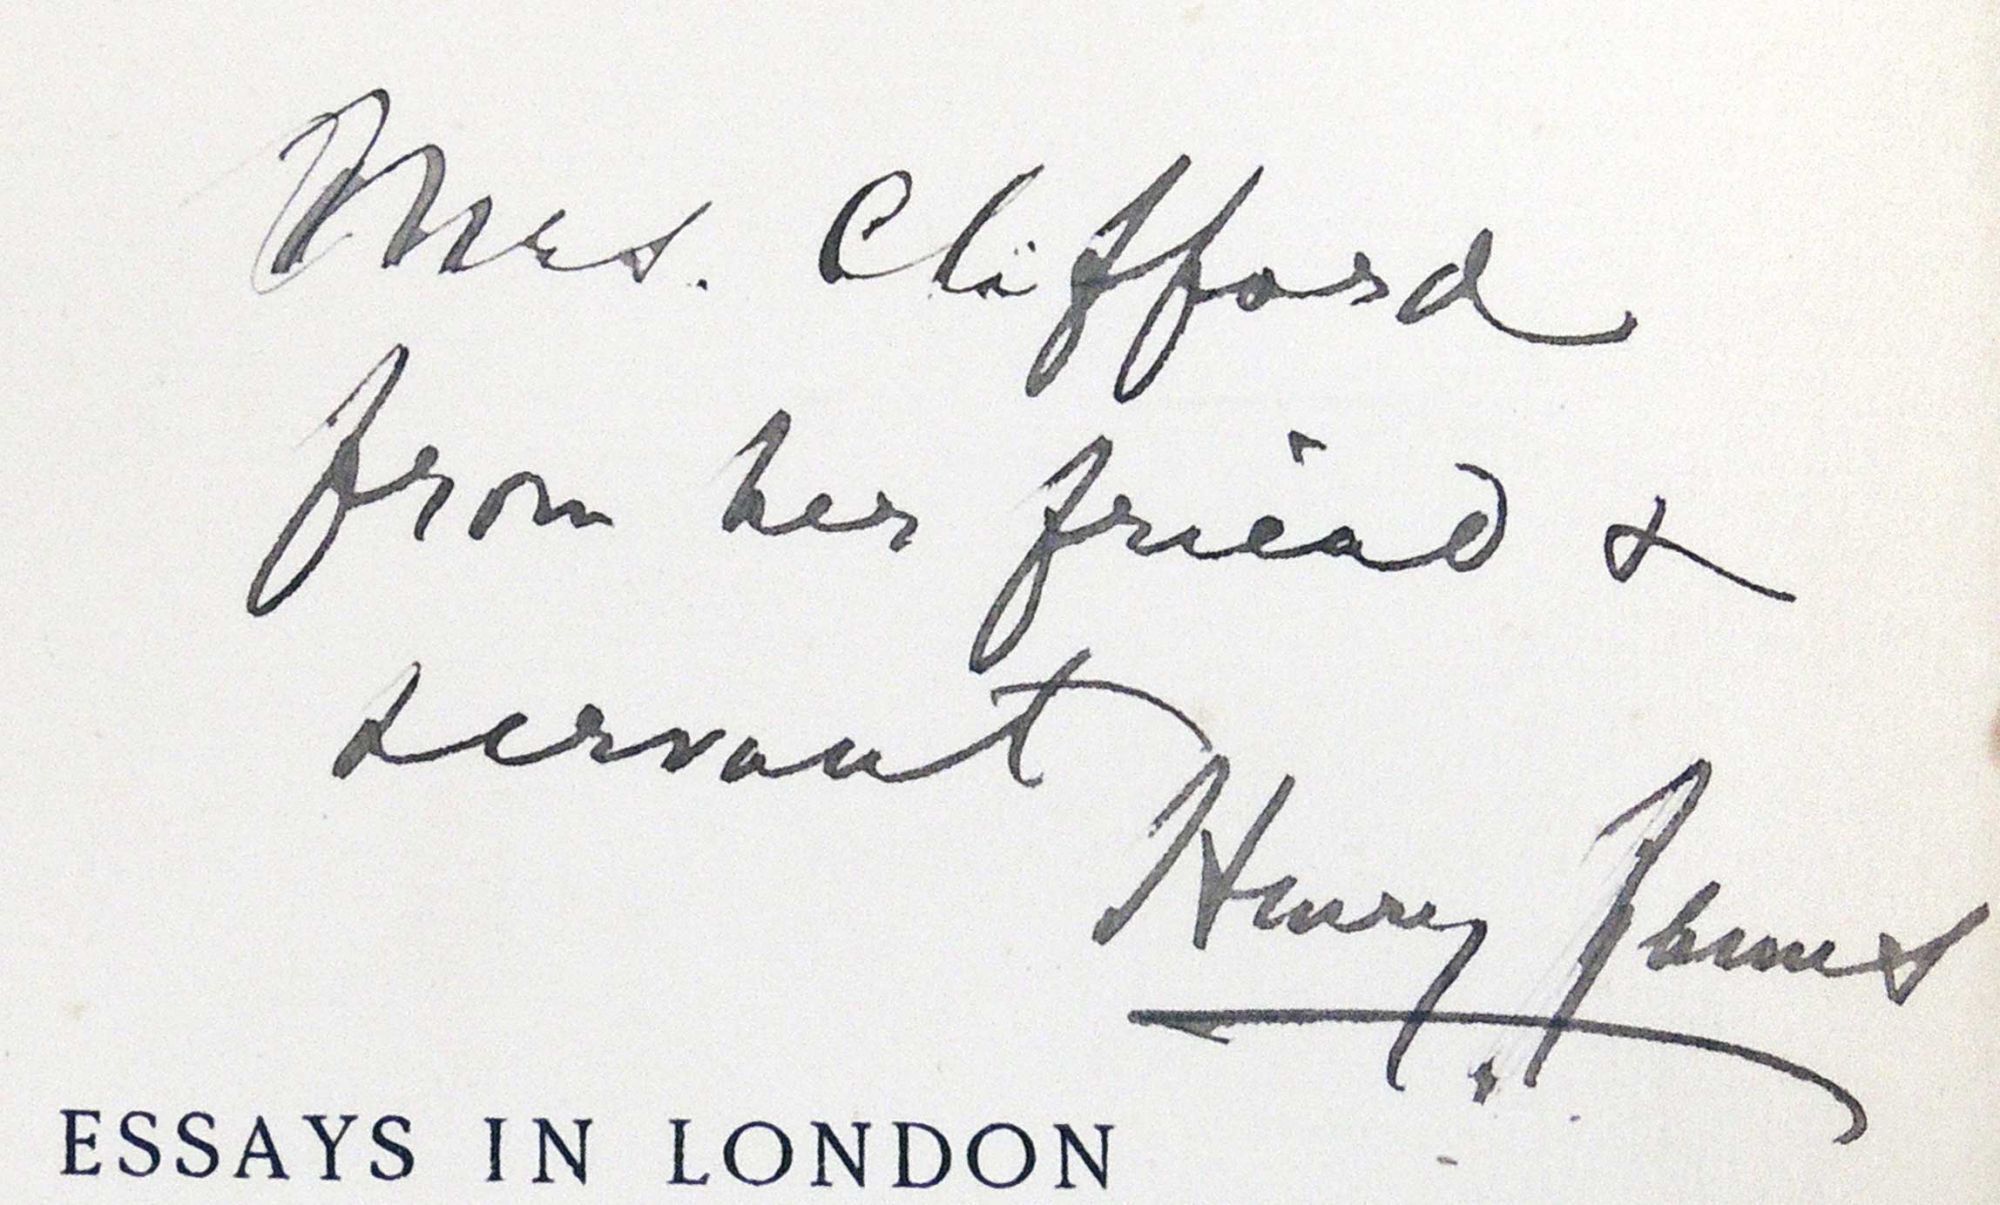 Mrs. Clifford
from her friend &
servant
Henry James
ESSAYS IN LONDON